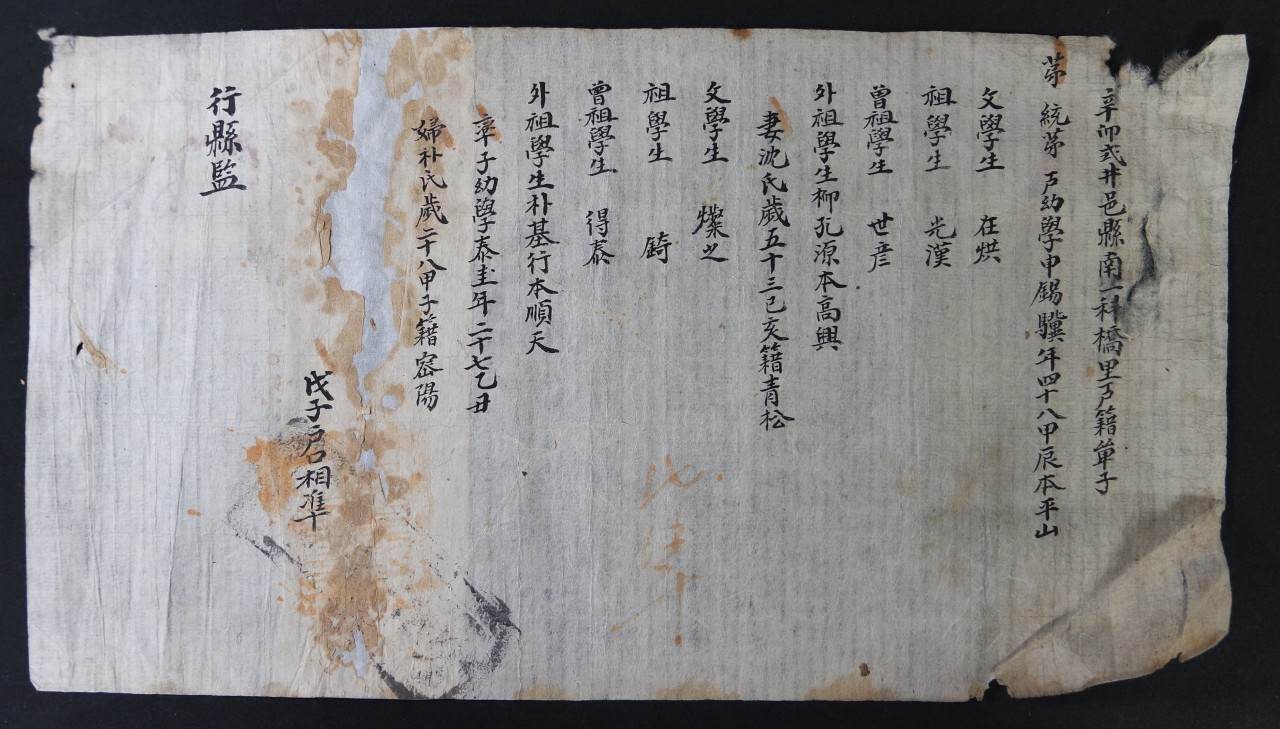 辛卯式井邑縣南一科橋里戶籍單子
第 統第 戶幼學申錫驥年四十八甲辰本平山
父學生 在烘
祖學生 光漢
曾祖學生 世彦
外祖學生柳孔源本高興
妻沈氏歲五十三己亥籍青松
父學生 燦之
祖學生 錡
曾祖學生 得泰
外祖學生朴基行本順天
率子幼學泰圭年二十七乙丑
婦朴氏歲二十八甲子籍密陽
戊子戶口相準
行縣監